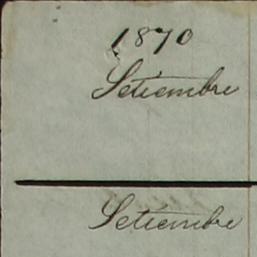 1870
Setiembre
Setiembre